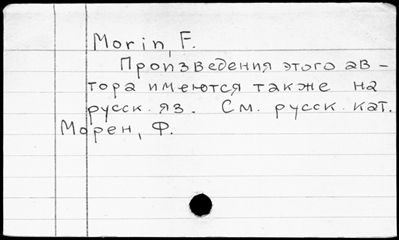 Morin, F.
Произведения этого ав-
тора имеются также на
русск. яз. См. русск. кат.
Морен, Ф.